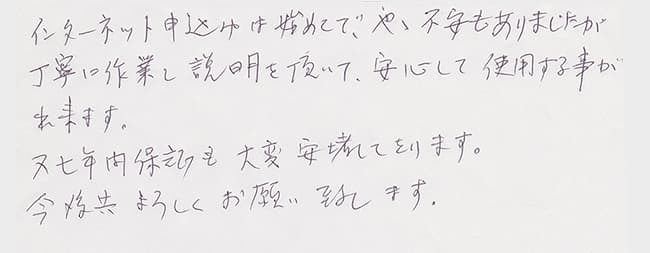 インターネット申込みは始めてで、やゝ不安もありましたが
丁寧に作業し説明を頂いて、安心して使用する事が
出来ます。
又七年間保証も大変安堵しております。
今後共よろしくお願い致します。